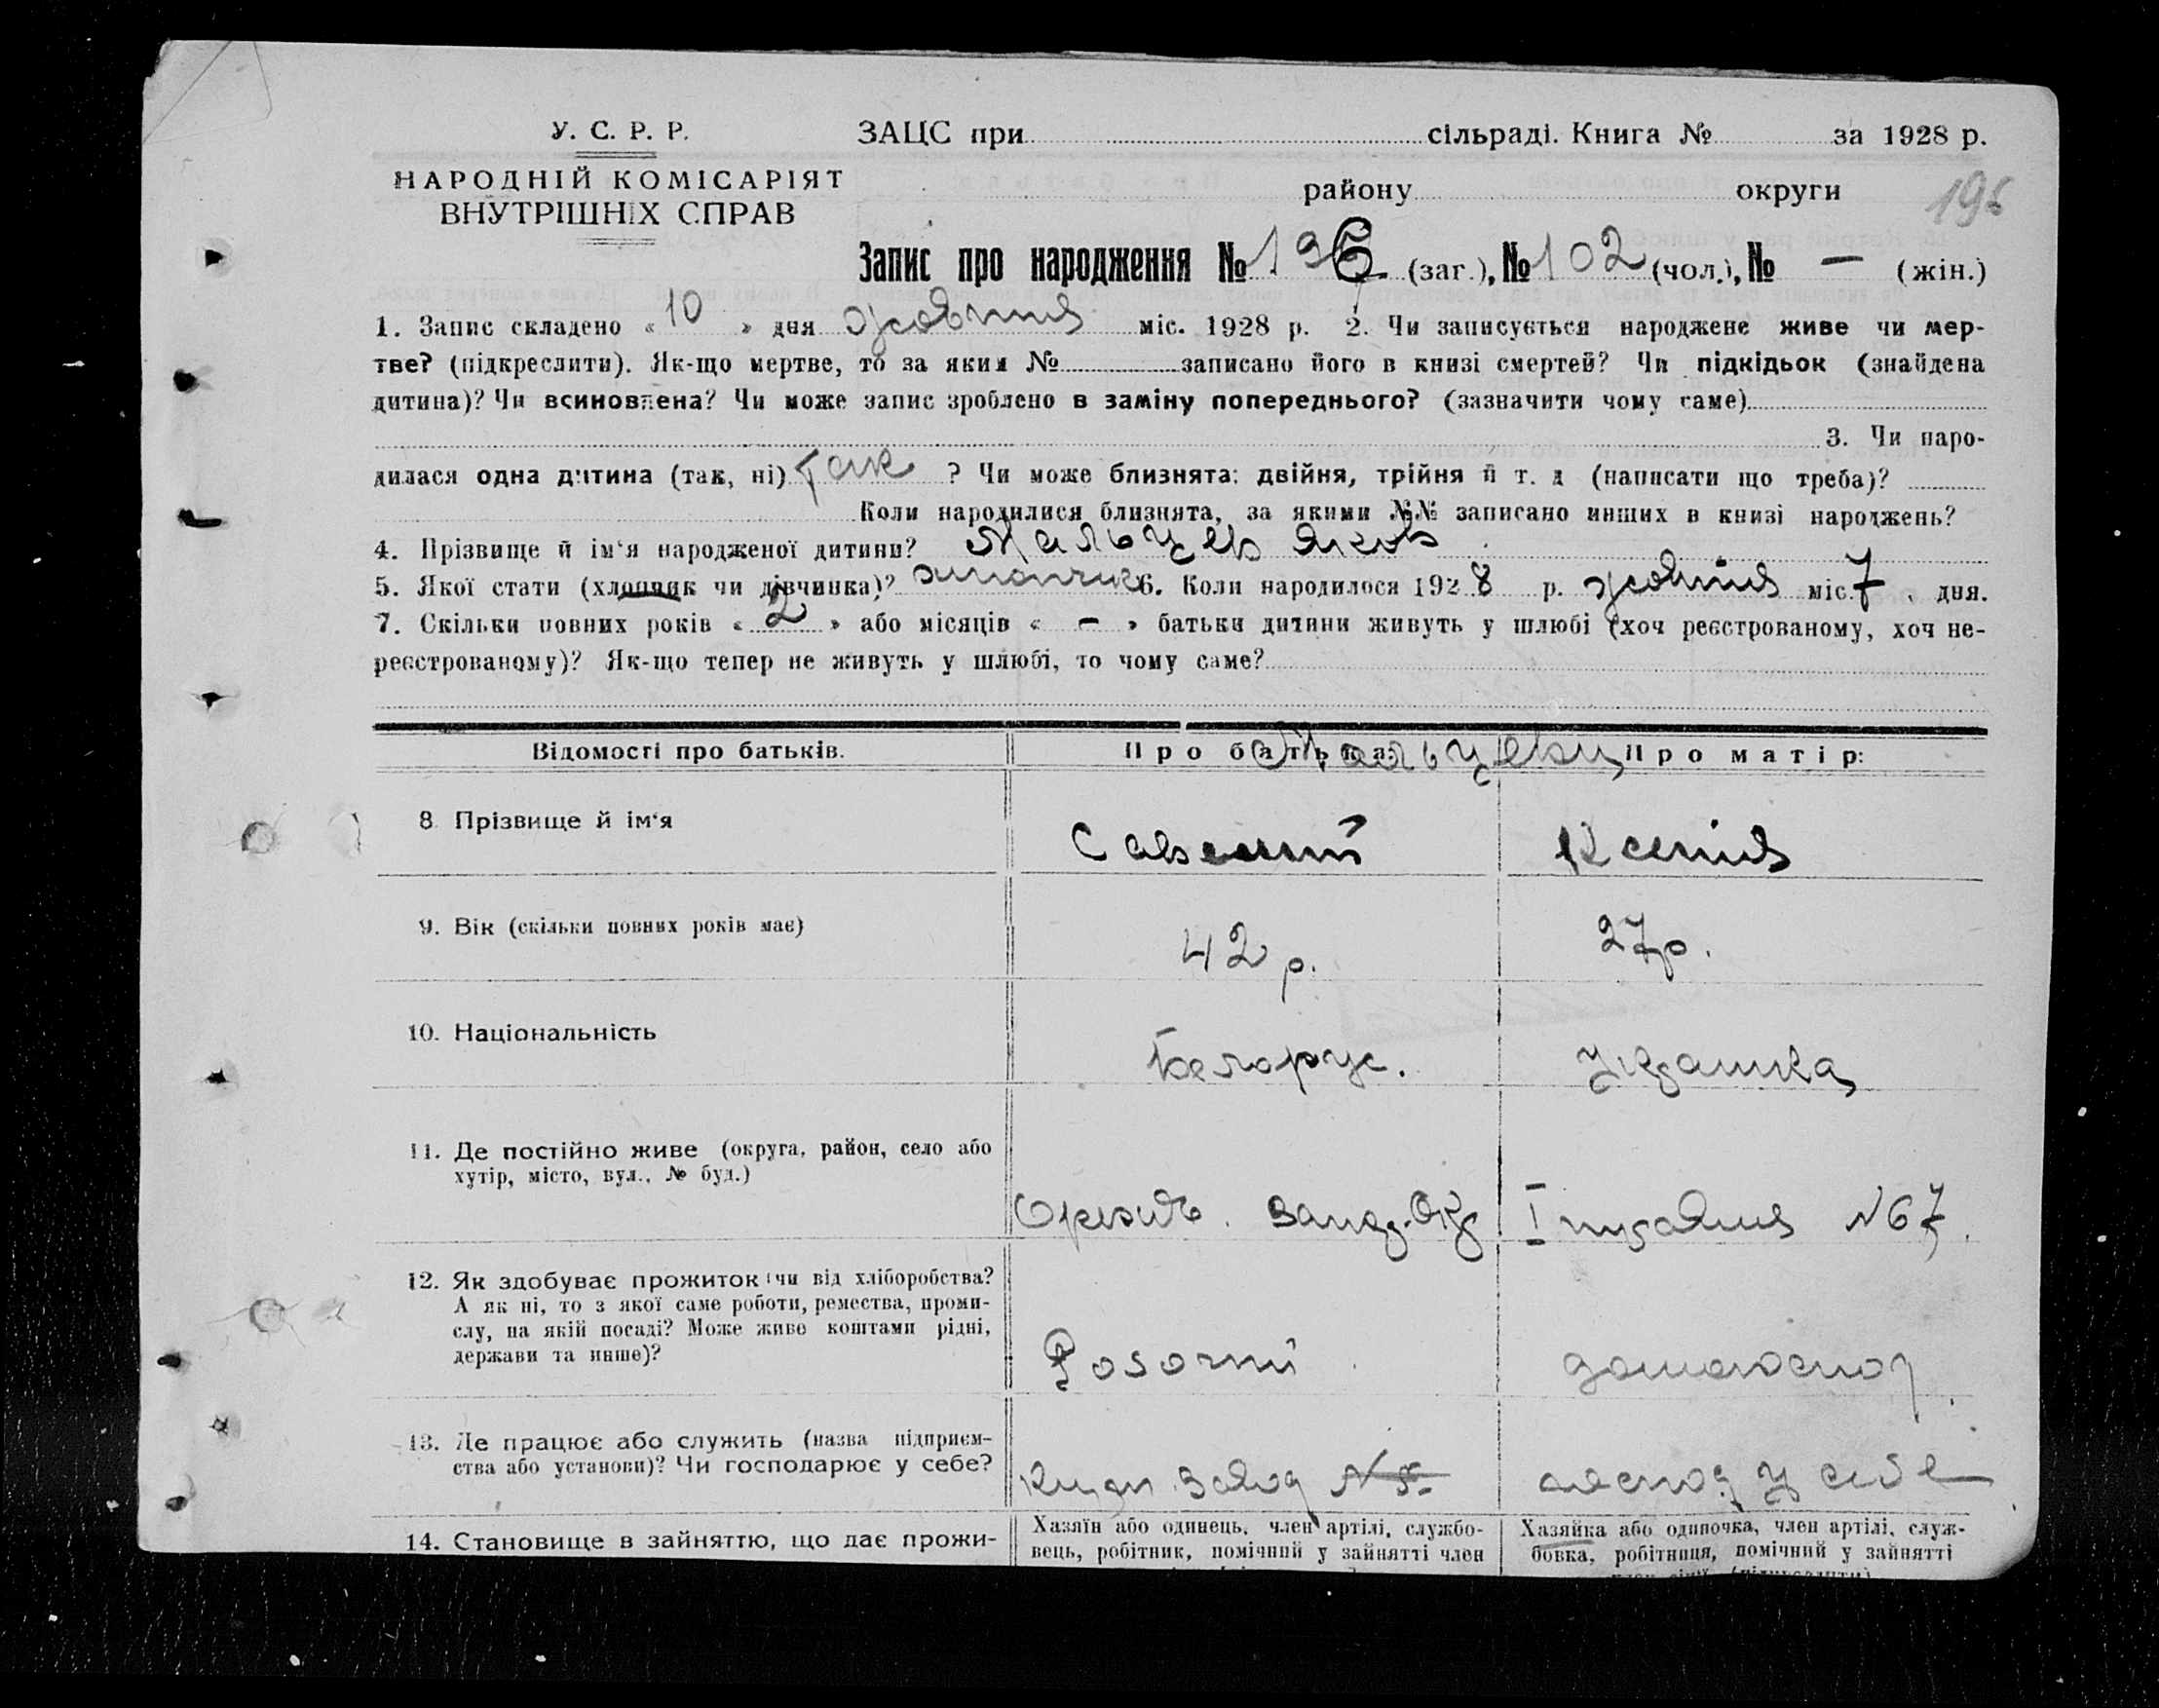 У. С. Р. Р.
НАРОДНІЙ КОМІСАРІЯТ
ВНУТРІШНІХ СПРАВ
ЗАЦС при сільраді. Книга № за 1928 р.
району округи
196
Запис про народження № 196 (заг.), № 102 (чол.), № — (жін.)
1. Запис складено « 10 » дня жовтня міс. 1928 р. 2. Чи записується народжене живе чи мер-
тве? (підкреслити). Як-що мертве, то за яким № записано його в книзі смертей? Чи підкідьок (знайдена
дитина)? Чи всиновлена? Чи може запис зроблено в заміну попереднього? (зазначити чому саме)
3. Чи наро-
дилася одна дитина (так, ні) Так ? Чи може близнята: двійня, трійня й т. д (написати що треба)?
Коли народилися близнята, за якими №№ записано инших в книзі народжень?
4. Прізвище й ім‘я народженої дитини? Мальцев Яков
5. Якої стати (хлопчик чи дівчинка)? хлопчик 6. Коли народилося 1928 р. жовтня міс. 7 дня.
7. Скільки повних років « 2 » або місяців « - » батьки дитини живуть у шлюбі (хоч реєстрованому, хоч не-
реєстрованому)? Як-що тепер не живуть у шлюбі, то чому саме?
Відомості про батьків. Про батька: Мальцеви Про матір:
8 Прізвище й ім‘я Савелий Ксенія
9. Вік (скільки повних років має) 42 р. 27 р.
10. Національність Белорус. Украинка
11. Де постійно живе (округа, район, село або
хутір, місто, вул., № буд.)
Орехів. Запор. Окр I № 67
12. Як здобуває прожиток: чи від хліборобства?
А як ні, то з якої саме роботи, ремества, проми-
слу, на якій посаді? Може живе коштами рідні,
держави та инше)?
Робочий домогоспод.
13. Де працює або служить (назва підприєм-
ства або установи)? Чи господарює у себе?
завод № 5 господ у себе
14. Становище в зайняттю, що дає прожи-
Хазяїн або одинець, член артілі, службо-
вець, робітник, помічний у зайнятті член
Хазяйка або одиночка, член артілі, служ-
бовка, робітниця, помічний у зайнятті